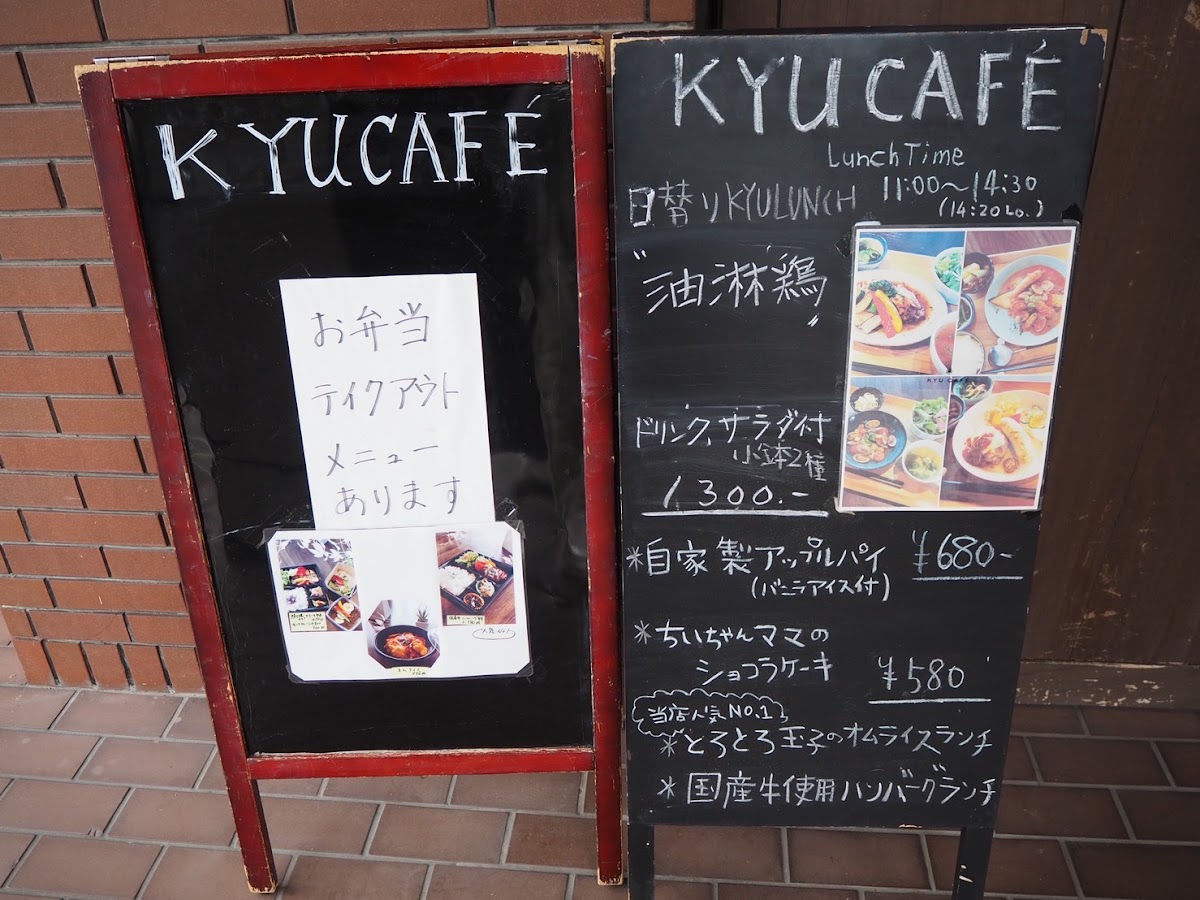 KYUCAFÉ
お弁当
テイクアウト
メニュー
あります
KYUCAFÉ
Lunch Time
日替りKYULUNCH 11:00〜14:30
(14:20 Lo.)
"油淋鶏"
KYU CAFE
ドリンク、サラダ付
小鉢2種
1300.-
*自家製アップルパイ ¥680-
(バニラアイス付)
*ちいちゃんママの
ショコラケーキ ¥580
当店人気NO.1
*とろとろ玉子のオムライスランチ
*国産牛使用ハンバーグランチ